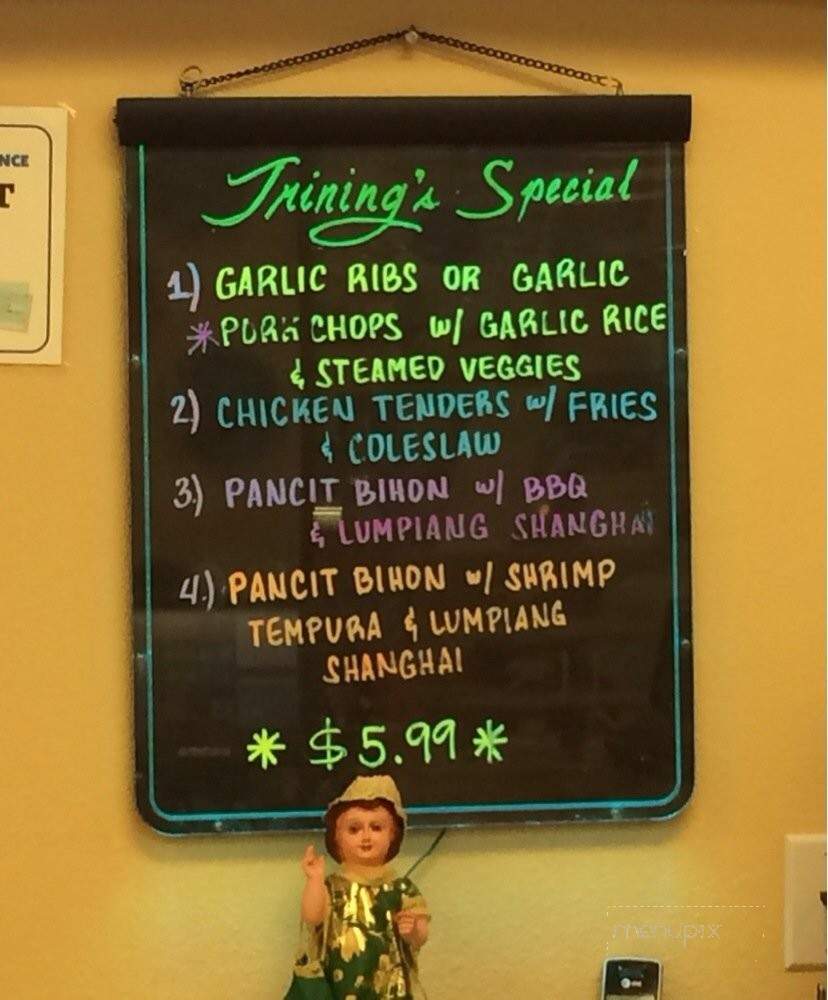 NCE
T
Trining's Special
1) GARLIC RIBS OR GARLIC
*PORK CHOPS w/ GARLIC RICE
& STEAMED VEGGIES
2) CHICKEN TENDERS w/ FRIES
& COLESLAW
3.) PANCIT BIHON w/ BBQ
& LUMPIANG SHANGHAI
4.) PANCIT BIHON w/ SHRIMP
TEMPURA & LUMPIANG
SHANGHAI
* $5.99 *
menupix
at&t